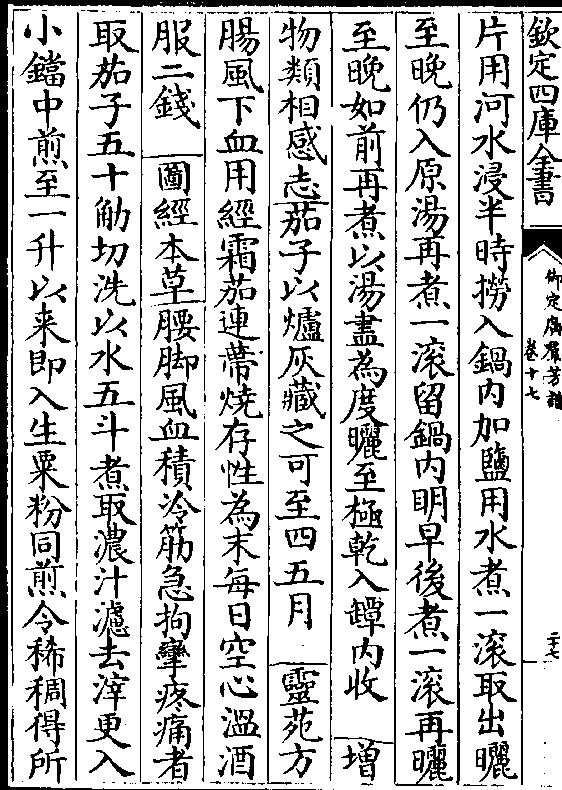 欽定四庫全書
御定廣羣芳譜
卷十七
二十七
片用河水浸半時撈入鍋内加鹽用水煮一滚取出曬
至晚仍入原湯再煮一滚留鍋内明早後煮一滚再曬
至晚如前再煮以湯盡為度曬至極乾入罈内收 增
物類相感志茄子以爐灰藏之可至四五月 靈苑方
腸風下血用經霜茄連蔕燒存性為末每日空心溫酒
服二錢 圖經本草腰脚風血積冷筋急拘攣疼痛者
取茄子五十觔切洗以水五斗煮取濃汁濾去滓更入
小鐺中煎至一升以来即入生粟粉同煎令稀稠得所